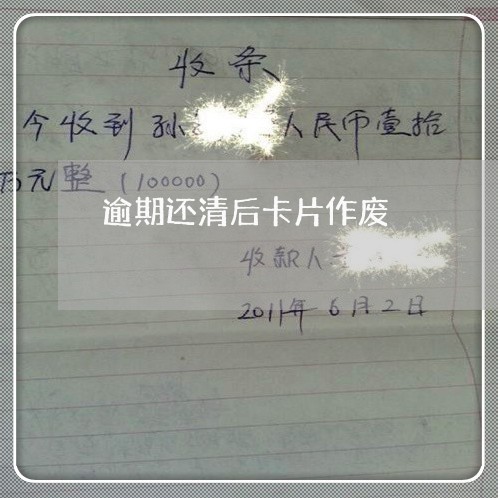 收条
今收到孙人民币壹拾
万元整(100000)
逾期还清后卡片作废
收款人
2011年6月2日